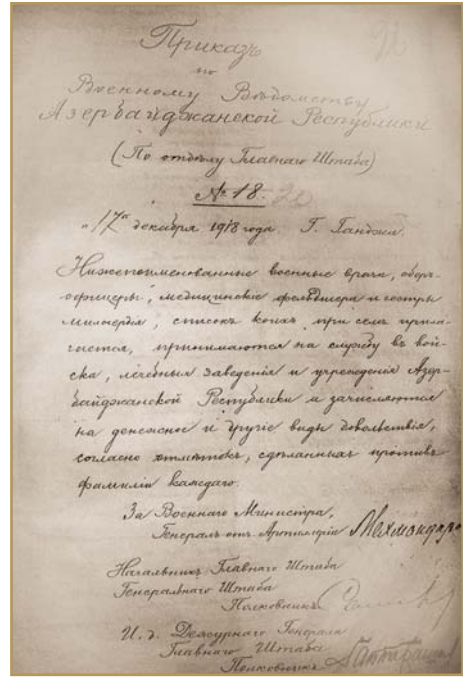 Приказъ
по
Военному Вѣдомству
Азербайджанской Республики
(По отдѣлу Главнаго Штаба)
№ 18.
"17" декабря 1918 года. Г. Ганджа.
Нижепоименованные военные врачи, оберъ-
офицеры, медицинскіе фельдшера и сестры
милосердія, списокъ коихъ при семъ прила-
гается, принимаются на службу въ вой-
ска, лечебныя заведенія и учрежденія Азер-
байджанской Республики и зачисляются
на денежное и другіе виды довольствія,
согласно отмѣтокъ, сдѣланныхъ противъ
фамиліи каждаго.
За Военнаго Министра,
Генералъ отъ Артиллеріи Мехмандаро
Начальникъ Главнаго Штаба
Генеральнаго Штаба
Полковникъ
И. д. Дежурнаго Генерала
Главнаго Штаба
Полковникъ